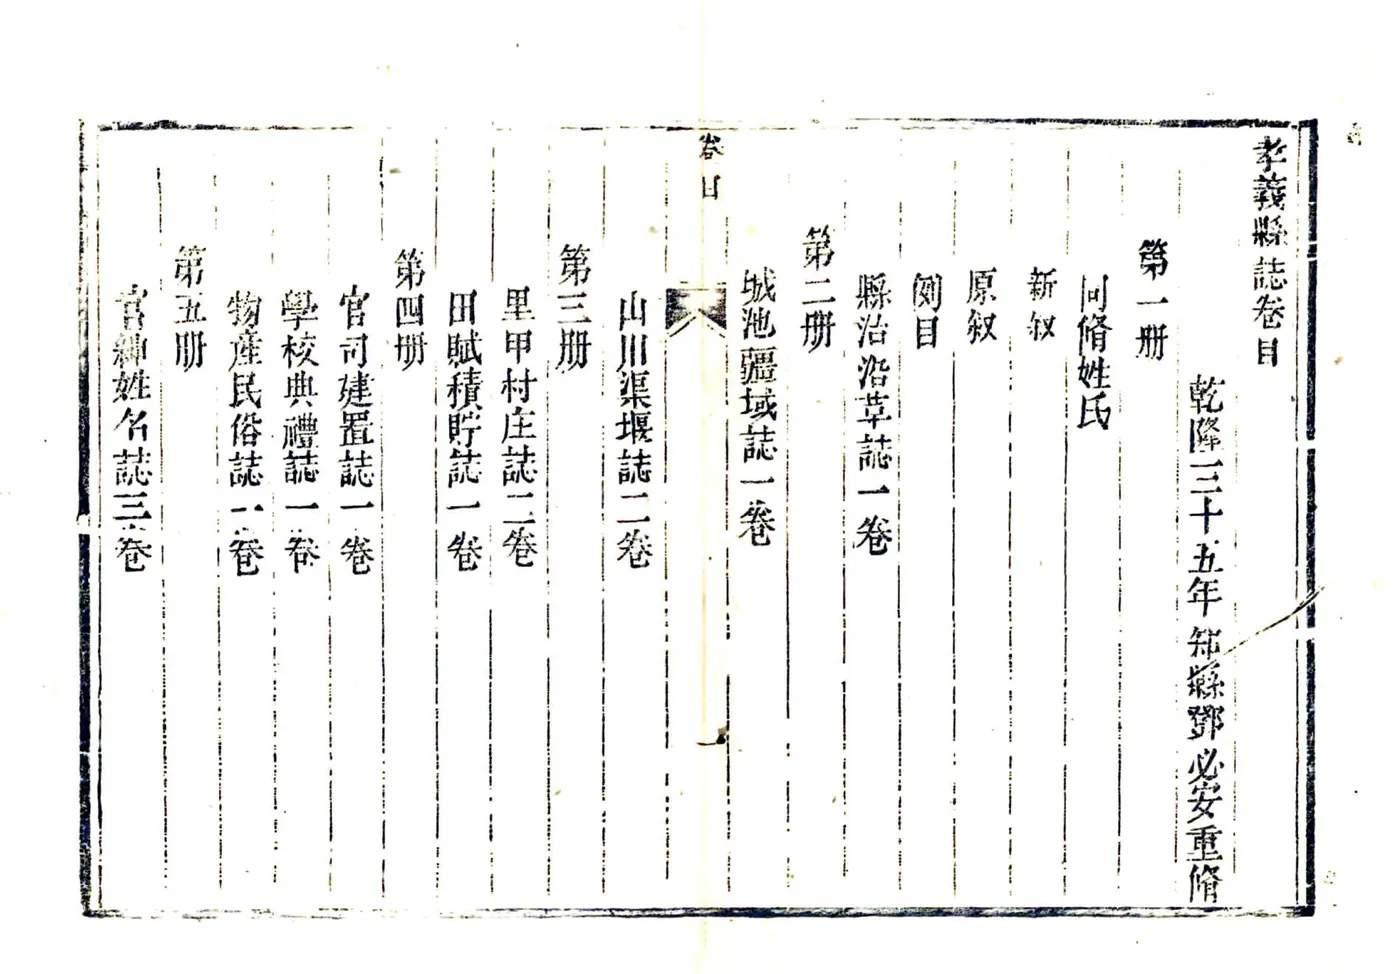 孝義縣誌卷目
乾隆三十五年知縣鄧必安重脩
第一册
同脩姓氏
新叙
原叙
例目
縣治沿革誌一卷
第二册
城池疆域誌一卷
卷目
一
山川渠堰誌二卷
第三册
里甲村庄誌二卷
田賦積貯誌一卷
第四册
官司建置誌一卷
學校典禮誌一卷
物產民俗誌一卷
第五册
官紳姓名誌三卷